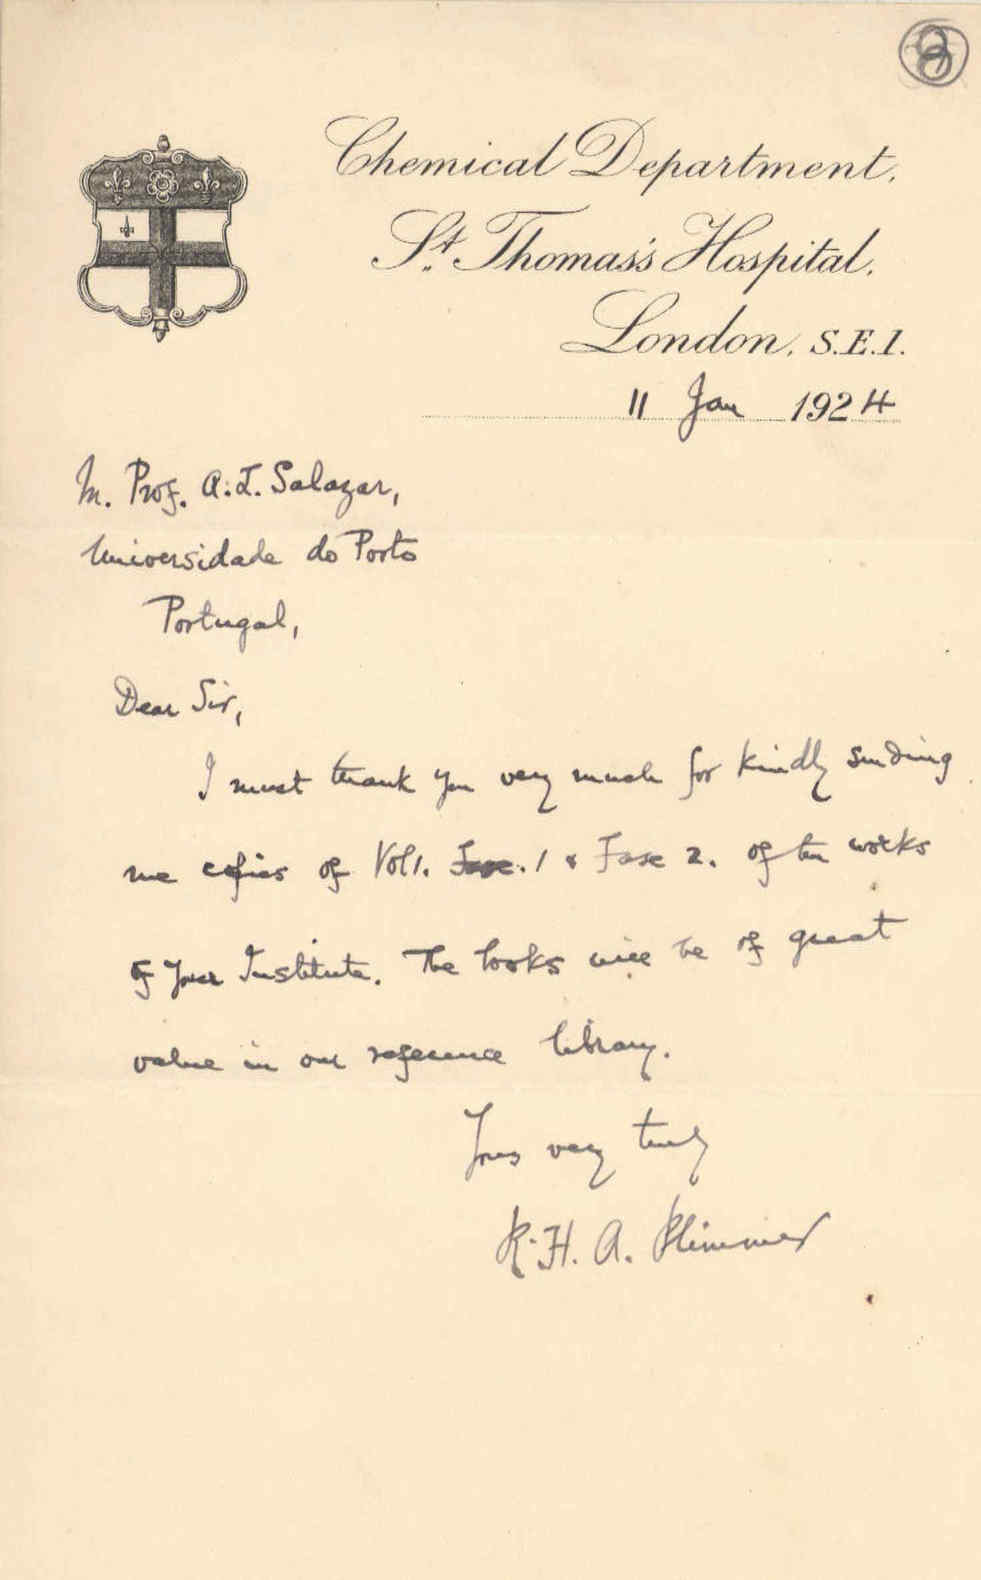 8
Chemical Department,
St. Thomas's Hospital,
London, S.E.1.
11 Jan 1924
M. Prof. A. L. Salazar,
Universidade do Porto
Portugal,
Dear Sir,
I must thank you very much for kindly sending
me copies of Vol 1. Fasc. 1 & Fasc 2. of the works
of your Institute. The books will be of great
value in our reference library.
Yours very truly
R. H. A. Plimmer